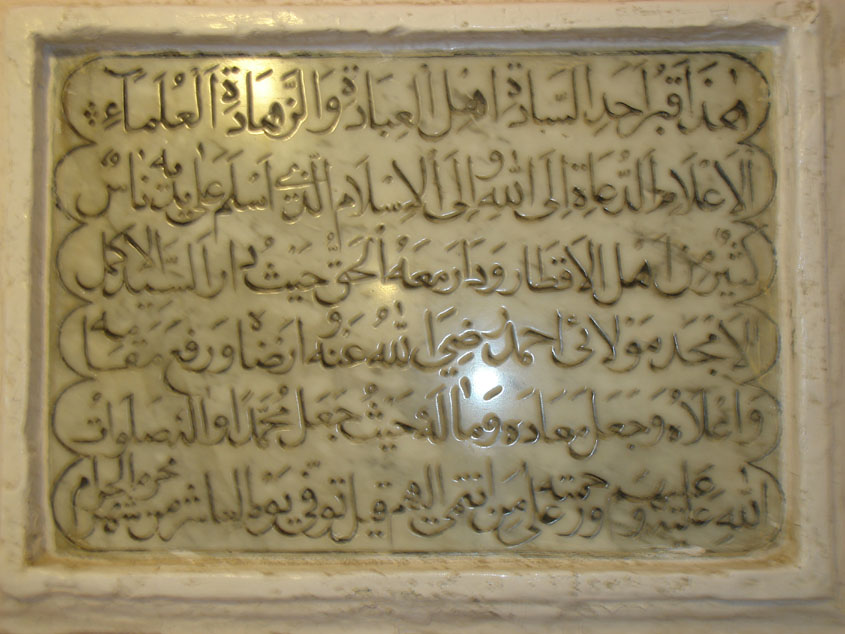 هٰذَا قَبْرُ اَحَدِ السَّادَةِ اَهْلِ العِبَادَةِ وَالزَّهَادَةِ اَلْعُلَمَآءِ
الاَعْلَامِ الدُّعَاةِ اِلَى اللّٰهِ وَاِلَى الاِسْلَامِ الَّذِي اَسْلَمَ عَلٰى يَدَيْهِ نَاسٌ
كَثِيْرٌ مِنْ اَهْلِ الاَقْطَارِ وَدَارَ مَعَهُ الْحَقُّ حَيْثُ دَارَ السَّيِّدِ الاَكْمَلِ
الاَمْجَدِ مَوْلَائِى احمد رَضِيَ اللّٰهُ عَنْهُ وَارَضَاهُ وَرَفَعَ مَقَامَهُ
وَاَعْلَاهُ وَجَعَلَ مَعَادَهُ وَمَالَهُ حَيْثُ جَعَلَ مُحَمَّدًا وَالَهُ صَلَوَاتُ
اللّٰهِ عَلَيْهِ وَعَلَيْهِمْ وَرَحْمَتُهُ عَلٰى مَنِ انْتَمٰى اِلَيْهِمْ قِيْلَ تُوُفِّيَ يَوْمَ العَاشِرِ مِنْ شَهْرِ مُحَرَّمِ الحَرَامِ